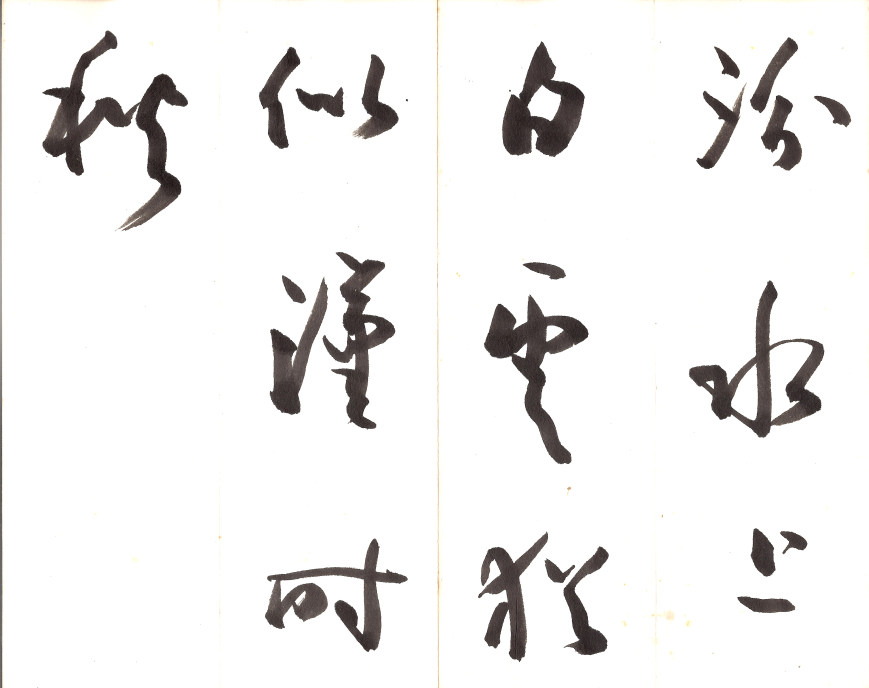 汾水上
白雲猶
似漢時
秋